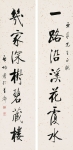 一路沿溪花覆水
幾家深樹碧藏樓